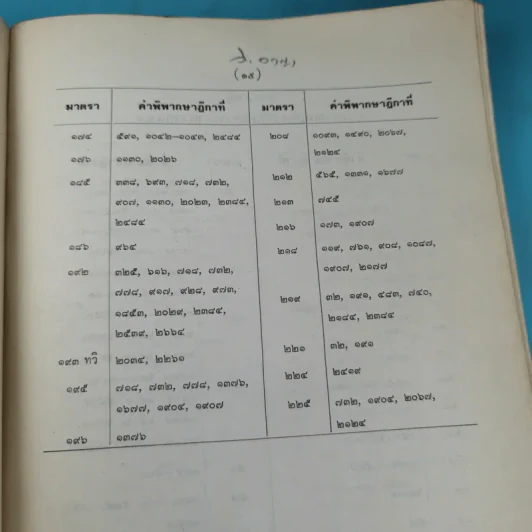 ว. อาญา
(๑๕)
มาตรา คำพิพากษาฎีกาที่ มาตรา คำพิพากษาฎีกาที่
๑๗๔ ๕๙๑, ๑๐๔๒-๑๐๔๓, ๒๔๘๔
๑๗๖ ๑๑๓๐, ๒๐๒๖
๑๘๕ ๓๓๘, ๖๙๓, ๗๑๘, ๗๓๒,
๙๐๗, ๑๑๓๐, ๒๐๒๓, ๒๓๘๔,
๒๔๘๔
๑๘๖ ๙๖๔
๑๙๒ ๓๒๕, ๖๑๖, ๗๑๘, ๗๓๒,
๗๗๘, ๙๑๗, ๙๒๘, ๙๗๓,
๑๘๕๓, ๒๐๒๙, ๒๓๘๔,
๒๕๓๙, ๒๖๖๔
๑๙๓ ทวิ ๒๐๓๔, ๒๒๖๑
๑๙๕ ๗๑๘, ๗๓๒, ๗๗๘, ๑๓๗๖,
๑๖๗๗, ๑๙๐๔, ๑๙๐๗
๑๙๖ ๑๓๗๖
๒๐๘ ๑๐๙๓, ๑๔๙๐, ๒๐๖๗,
๒๑๒๔
๒๑๒ ๕๖๕, ๑๓๓๑, ๑๖๗๗
๒๑๓ ๗๔๕
๒๑๖ ๑๗๓, ๑๙๐๗
๒๑๘ ๑๑๙, ๗๖๑, ๙๐๘, ๑๐๘๗,
๑๙๐๗, ๒๑๗๗
๒๑๙ ๓๒, ๑๙๑, ๔๘๓, ๗๔๐,
๒๑๘๔, ๒๓๘๔
๒๒๑ ๓๒, ๑๙๑
๒๒๔ ๒๔๑๙
๒๒๕ ๗๓๒, ๑๙๐๔, ๒๐๖๗,
๒๑๒๔